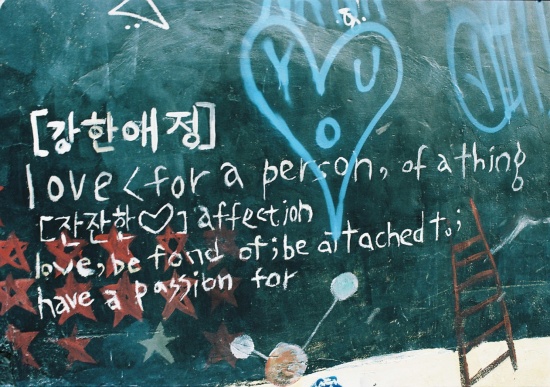 YOU
[강한애정]
love < for a person, of a thing
[잔잔한♡] affection
love, be fond of; be attached to;
have a passion for